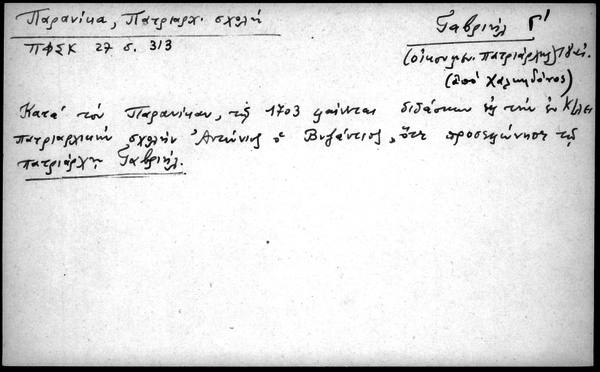 Παρανίκα, Πατριαρχ. σχολή
ΠΦΣΚ 27 σ. 313
Γαβριήλ Γ΄
(οἰκουμ. πατριάρχης) 18 αἰ.
(ἀπό Χαλκηδόνος)
Κατά τόν Παρανίκαν, τῷ 1703 φαίνεται διδάσκων εἰς τήν ἐν Κ/λει
πατριαρχικήν σχολήν Ἀντώνιος ὁ Βυζάντιος, ὅτε προσεφώνησε τῷ
πατριάρχῃ Γαβριήλ.